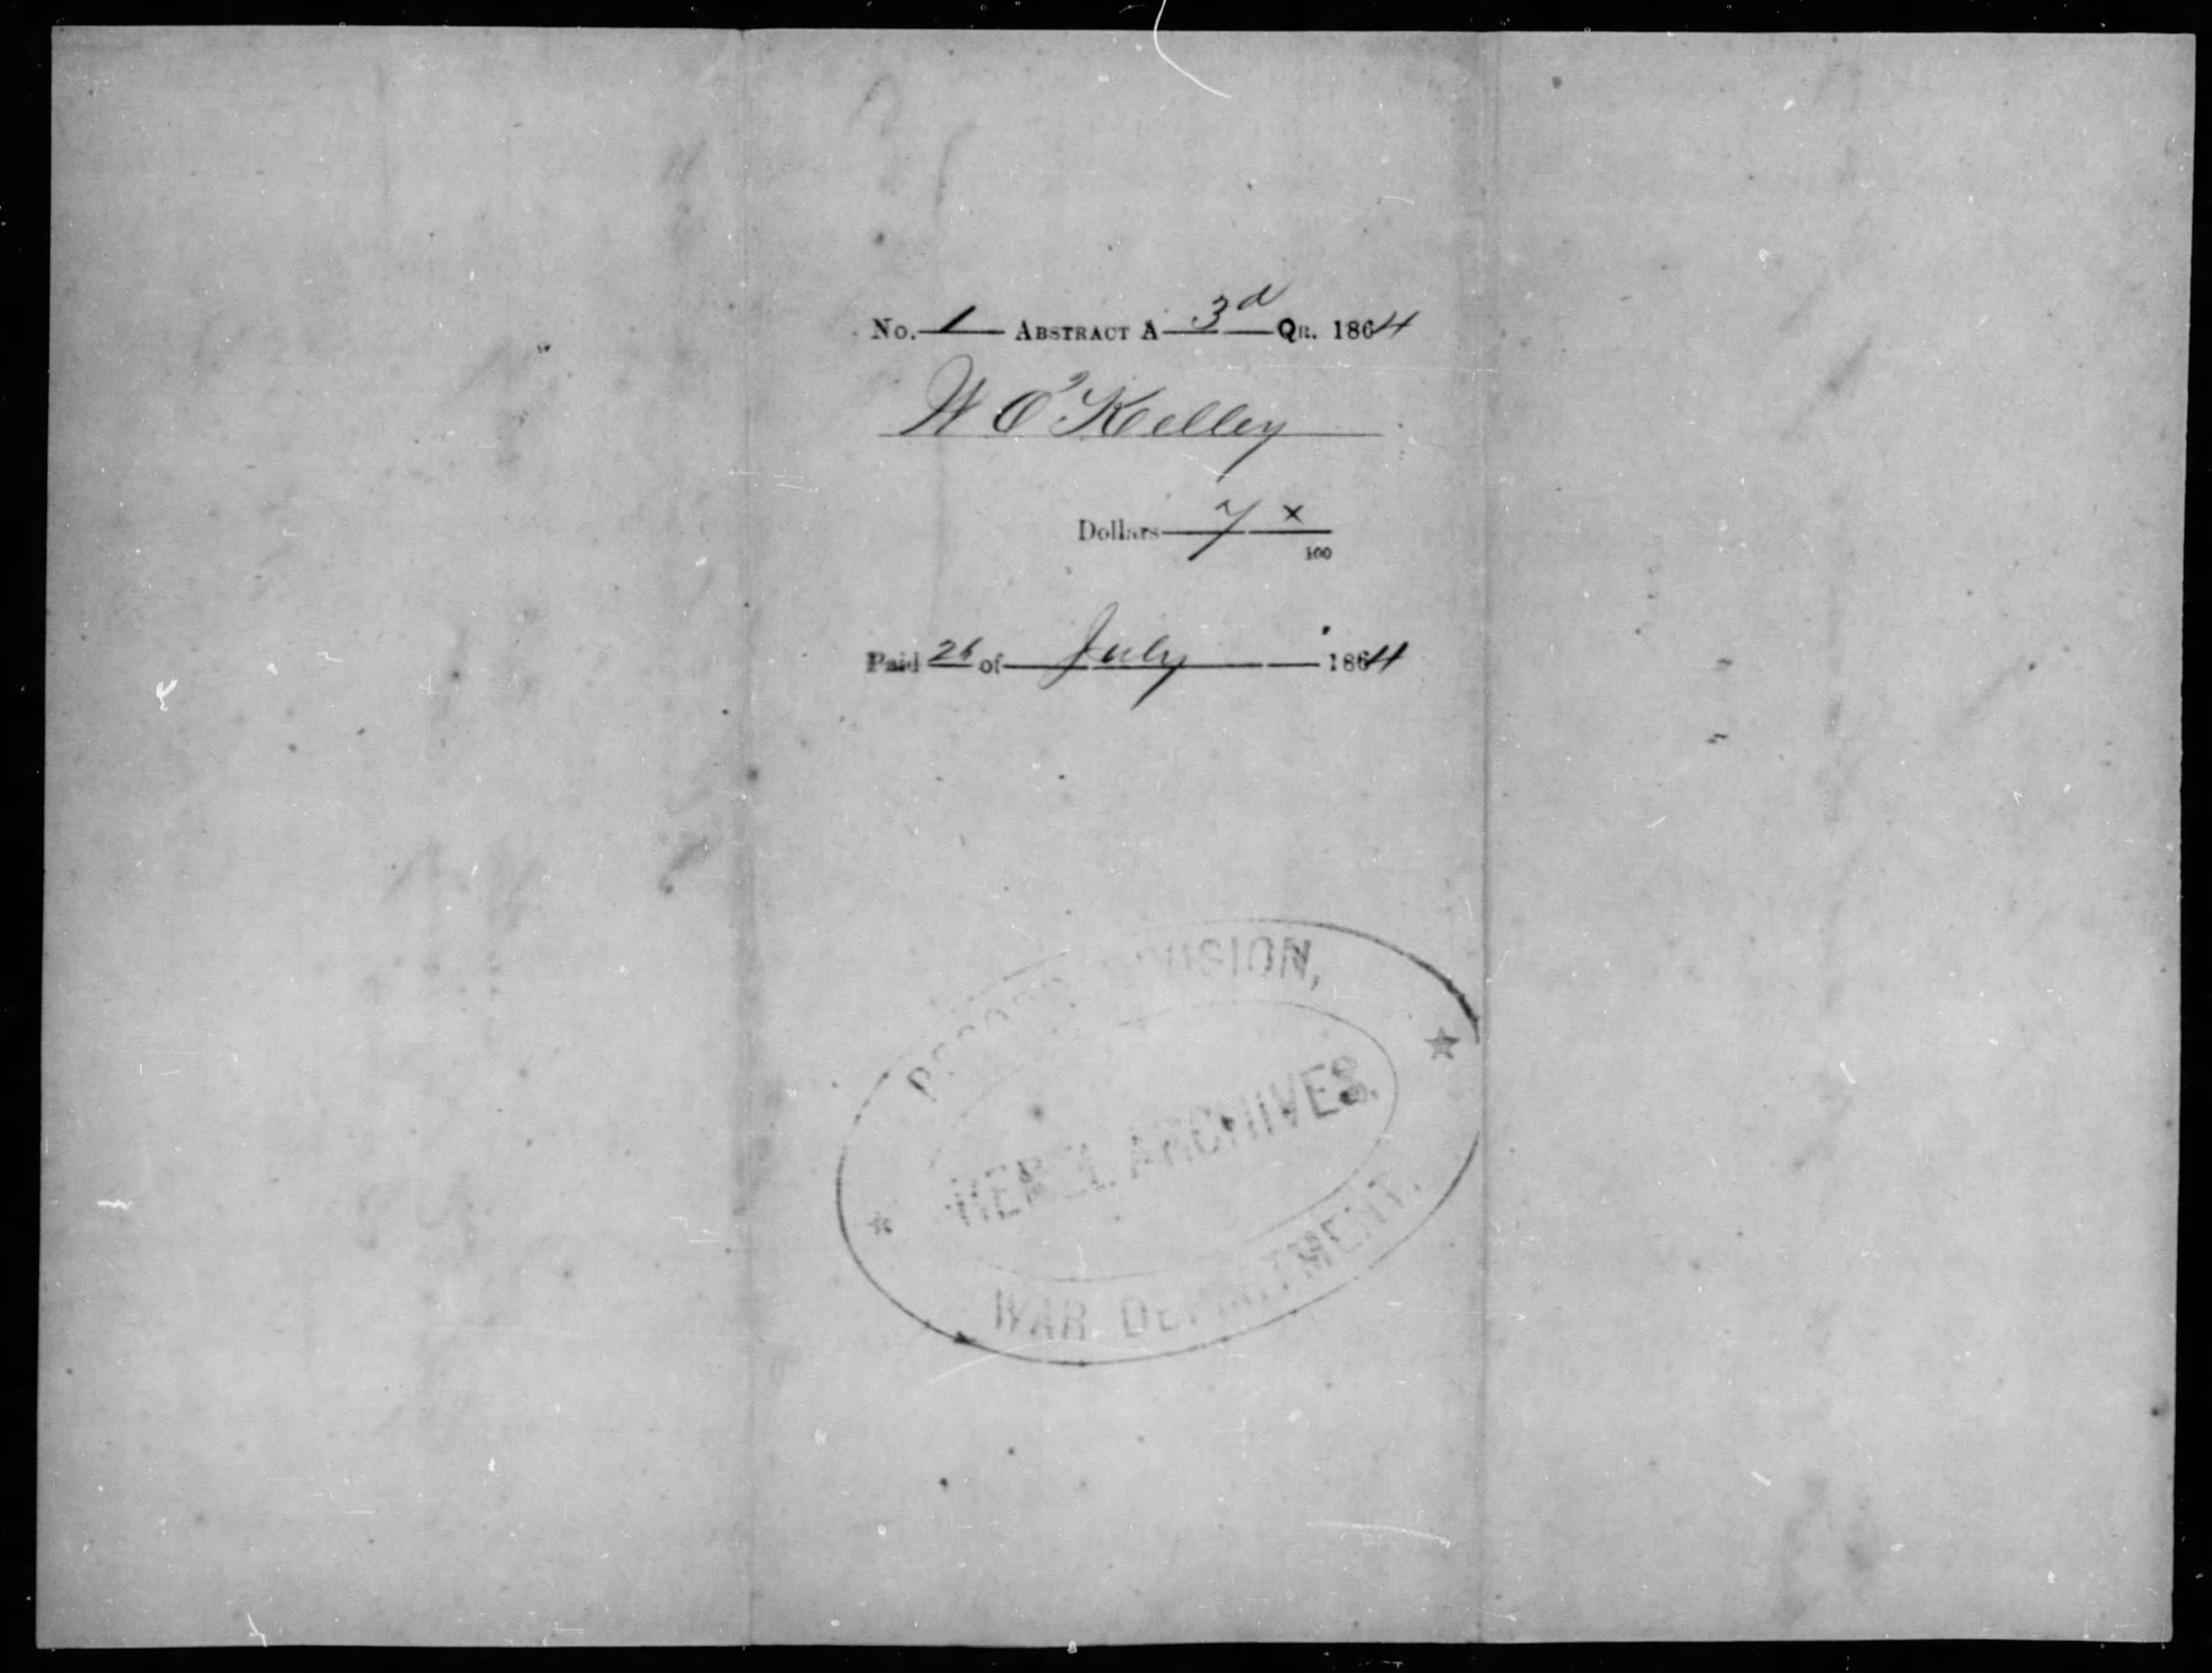 No. 1 ABSTRACT A 3d QR. 1864
W O'Kelley
Dollars 7 x/100
Paid 26 of July 1864
RECORD DIVISION,
REBEL ARCHIVES.
WAR DEPARTMENT.